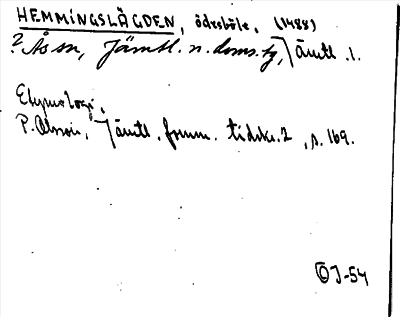 HEMMINGSLÄGDEN, ödesböle, (1488)
? Ås sn, Jämtl. n. doms. tg, Jämtl. l.
Etymologi,
P. Olsson, Jämtl. fornm. tidskr. 2, s. 169.
OJ-54